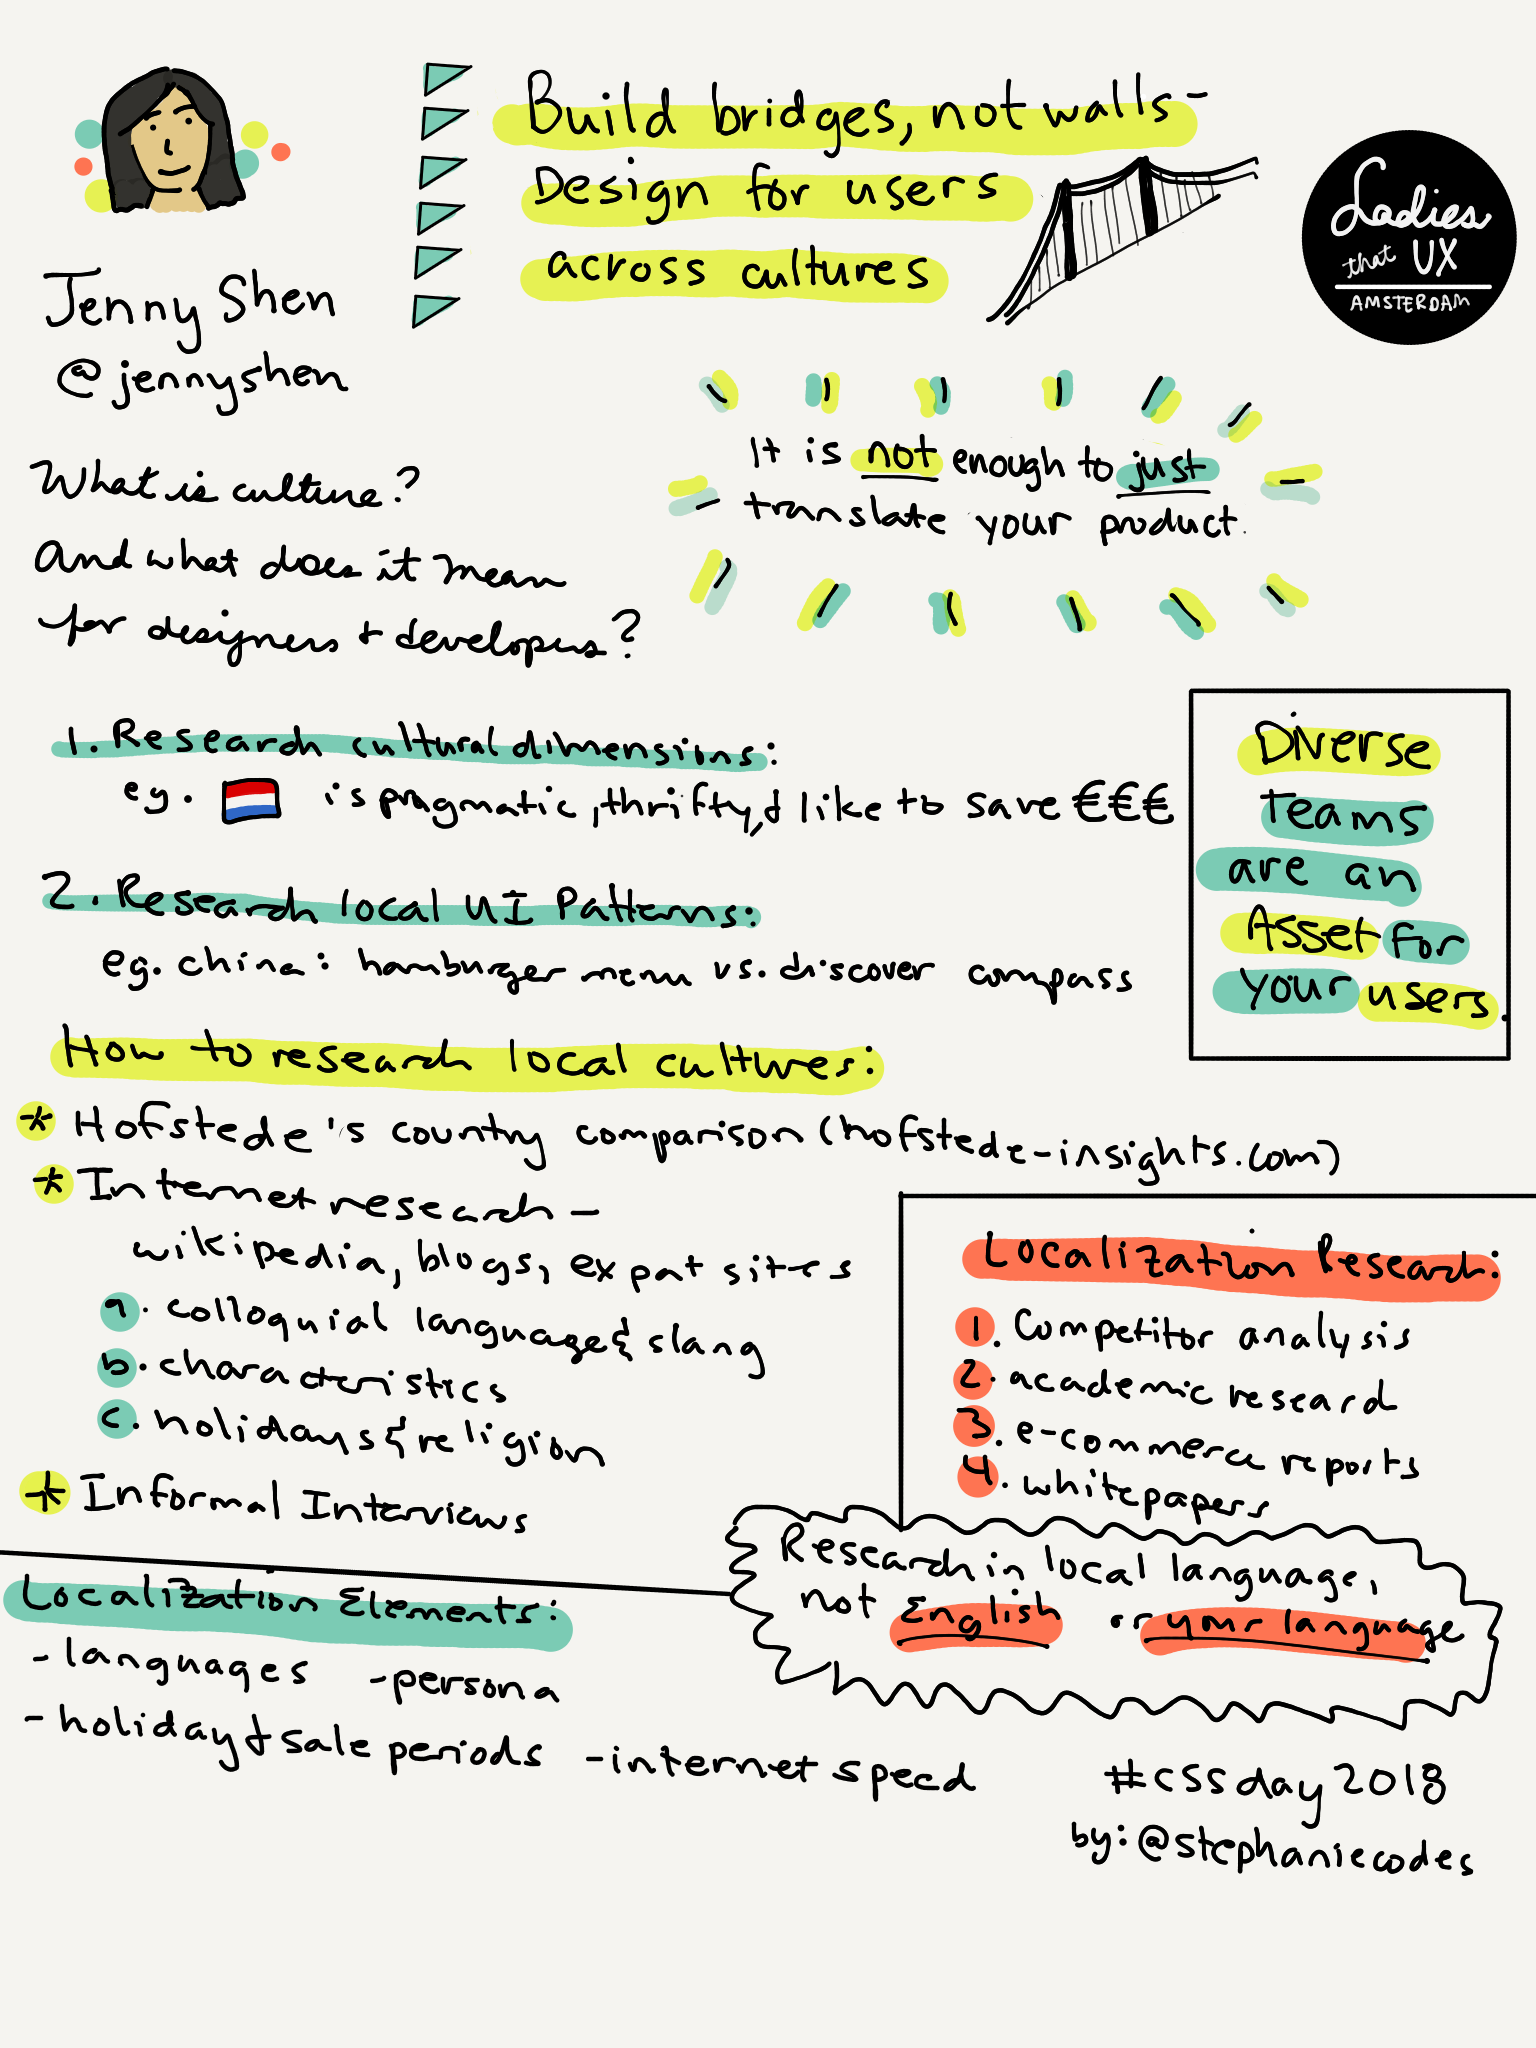 Build bridges, not walls -
Design for users
across cultures
Ladies
that UX
AMSTERDAM
Jenny Shen
@jennyshen
It is not enough to just
translate your product.
What is culture?
and what does it mean
for designers + developers?
1. Research cultural dimensions:
eg. 🇳🇱 is pragmatic, thrifty, & like to save €€€
2. Research local UI Patterns:
eg. china: hamburger menu vs. discover compass
Diverse
teams
are an
Asset for
your users.
How to research local cultures:
* Hofstede's country comparison (hofstede-insights.com)
* Internet research -
wikipedia, blogs, expat sites
a. colloquial language & slang
b. characteristics
c. holidays & religion
* Informal Interviews
Localization Research:
1. Competitor analysis
2. academic research
3. e-commerce reports
4. whitepapers
Research in local language,
not English or your language
Localization Elements:
- languages - persona
- holiday & sale periods - internet speed
#cssday 2018
by: @stephaniecodes